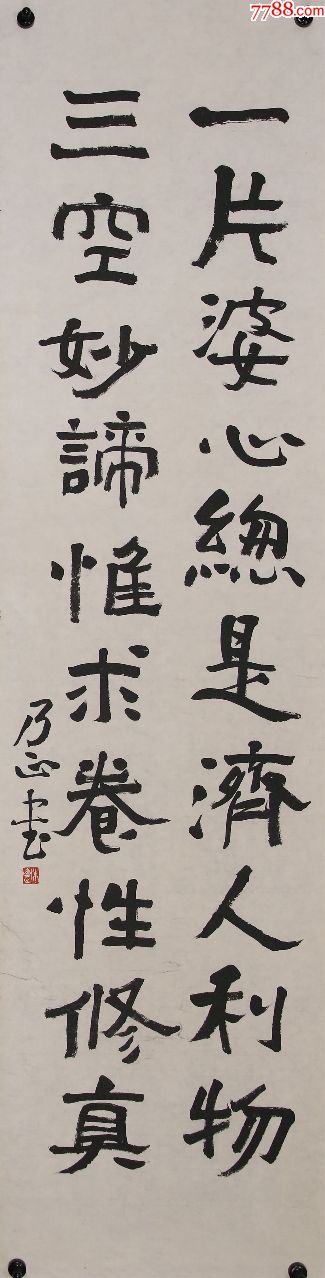 7788.com
一片婆心總是濟人利物
三空妙諦惟求眷性修真
乃正书